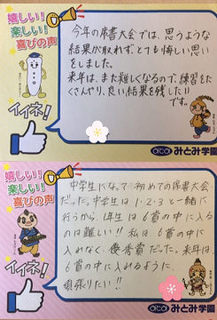 嬉しい!
楽しい!
喜びの声
イイネ!
今年の席書大会では、思うような
結果が取れず、とても悔しい思い
をしました。
来年は、また難しくなるので、練習をた
くさんやり、良い結果を残したい
です。
みとみ学園
嬉しい!
楽しい!
喜びの声
イイネ!
中学生になって初めての席書大会
だった。中学生は1・2・3と一緒に
行うから、1年生は6首の中に入る
のは難しい!!私は6首の中に
入れなく、優秀賞だった。来年は
6首の中に入れるように
頑張りたい!!
みとみ学園